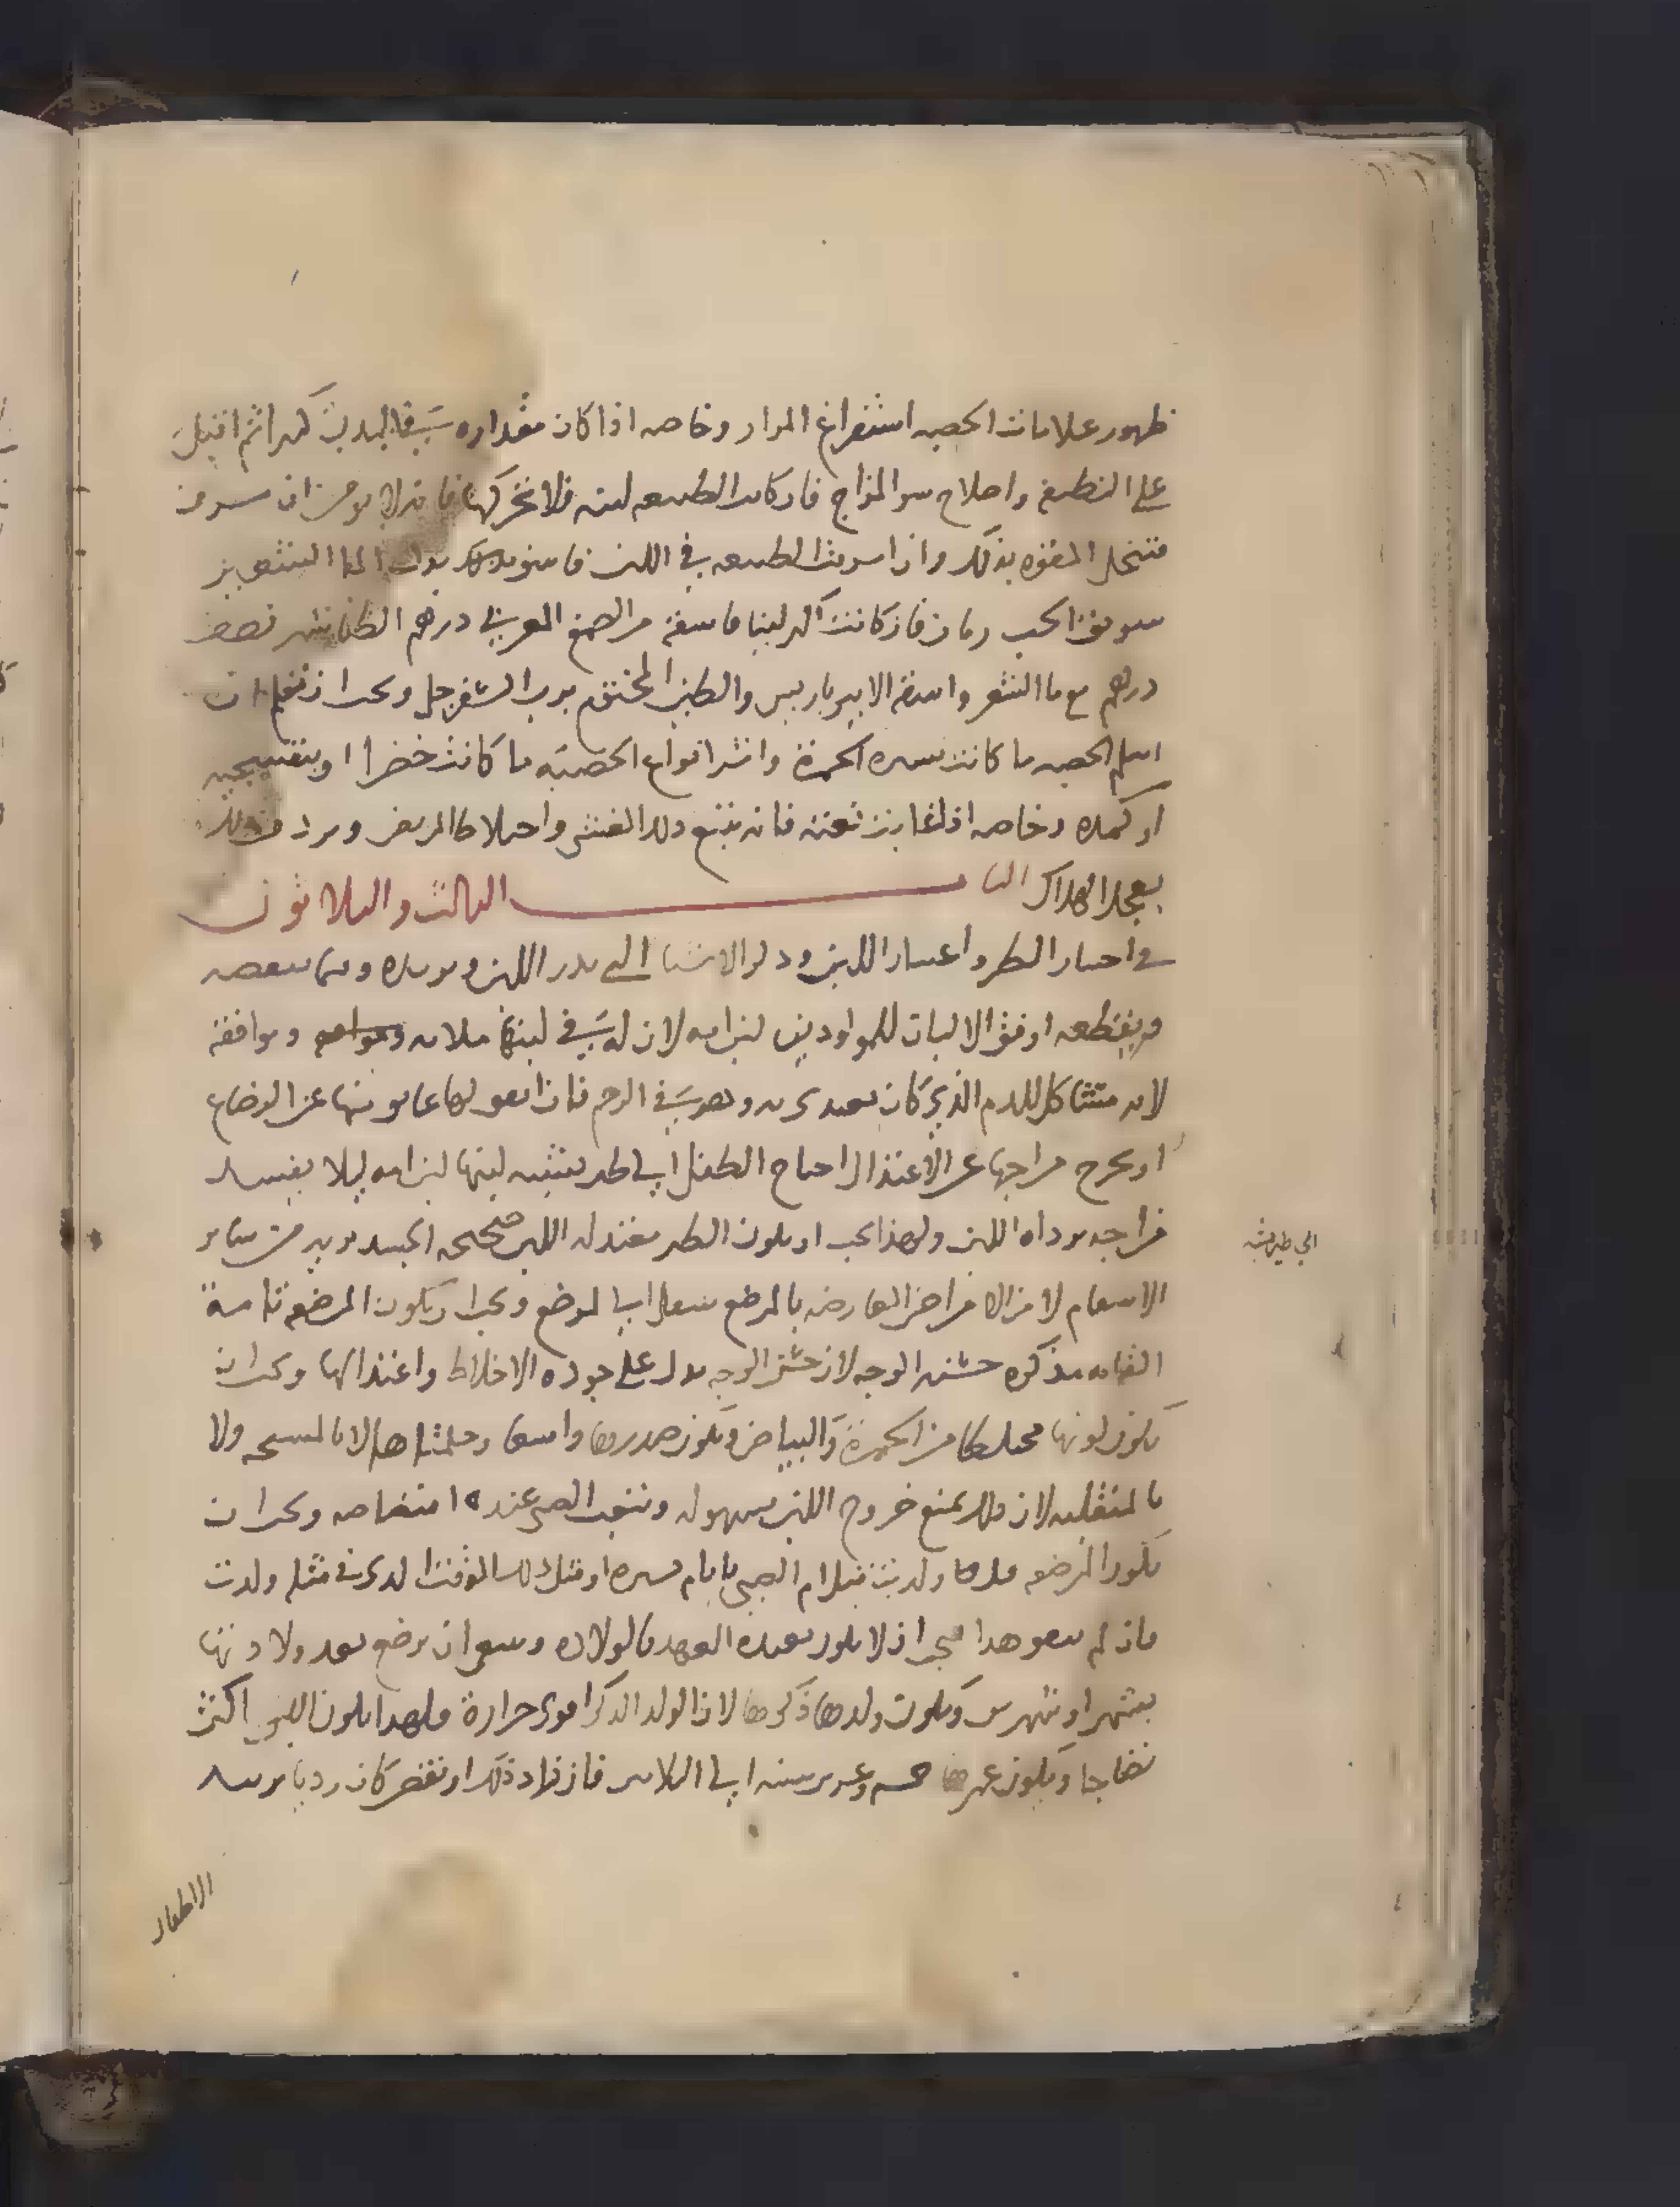 ظهور علامات الحصبه استفراغ المرار وخاصه اذا كان مقداره في البدن كثيرا ثم اقبل
على التطفيه واصلاح سو المزاج فان كانت الطبيعه لينه فلا تحركها فانه لا يومن ان
فتنحل القوه بذلك واذا اسرفت الطبيعه في اللين فاسق العليل بدل الما الشعير
سويق الحب رمان فان كانت اكثر لينا فاسقه من الصمغ العربي درهم الطباشير نصف
درهم مع ما الشعير واسقه الاميرباريس والطين المختوم برب السفرجل ويجب ان تعلم ان
اسلم الحصبه ما كانت يسيره الحمرة واشر انواع الحصبه ما كانت خضرا او بنفسجيه
او كمده وخاصه اذا غابت بغته فانه يتبع ذلك الغشي واختلاط المريض
يعجل الهلاك الباب الثالث والثلاثون
في اختيار الظئر واعتبار اللبن وذكر الاشيا التي تدر اللبن وتزيده وفيما ينقصه
ويقطعه اوفق الالبان للمولودين لبن امه لان له في لبنها ملايمه وموافقه
لانه متشاكل للدم الذي كان يغتدي به وهو في الرحم فان اتفق لها عايق منها عن الرضاع
او يخرج مزاجها عن الاعتدال احتاج الطفل الى ظئر يشبه لبنها لبن امه ليلا يفسد
مزاجه برداه اللبن ولهذا يجب ان يكون الظئر معتدله اللبن صحيحه الجسد بريه من ساير
الاسقام لان الامراض العارضه بالمرضع تنتقل الى المرضع ويجب ان يكون المرضعه تامة
القامه مذكره حسنه الوجه لان حسن الوجه يدل على جوده الاخلاط واعتدالها ويجب ان
يكون لونها مختلطا من الحمرة والبياض ويكون صدرها واسعا وحلمتاها لا بالمسحه ولا
بالمنقلبه لان ذلك يمنع خروج اللبن بسهوله ويتعب الصبي عند امتصاصه ويجب ان
يكون المرضعه قدها ولدت قبل ام الصبي بايام يسيره او مثل ذلك الوقت الذي في مثله ولدت
فان لم يتفق هذا فيجب ان لا يكون بعيده العهد بالولاده وينبغي ان يرضع بعد ولادتها
بشهر او شهرين ويكون ولدها ذكرها لان الولد الذكر اقوى حرارة فلهذا يكون اللبن اكثر
نضاجا ويكون عمرها خمسه وعشرين سنه الى الثلاثين فان زاد ذلك او نقص كان رديا يرسد
الاطفال